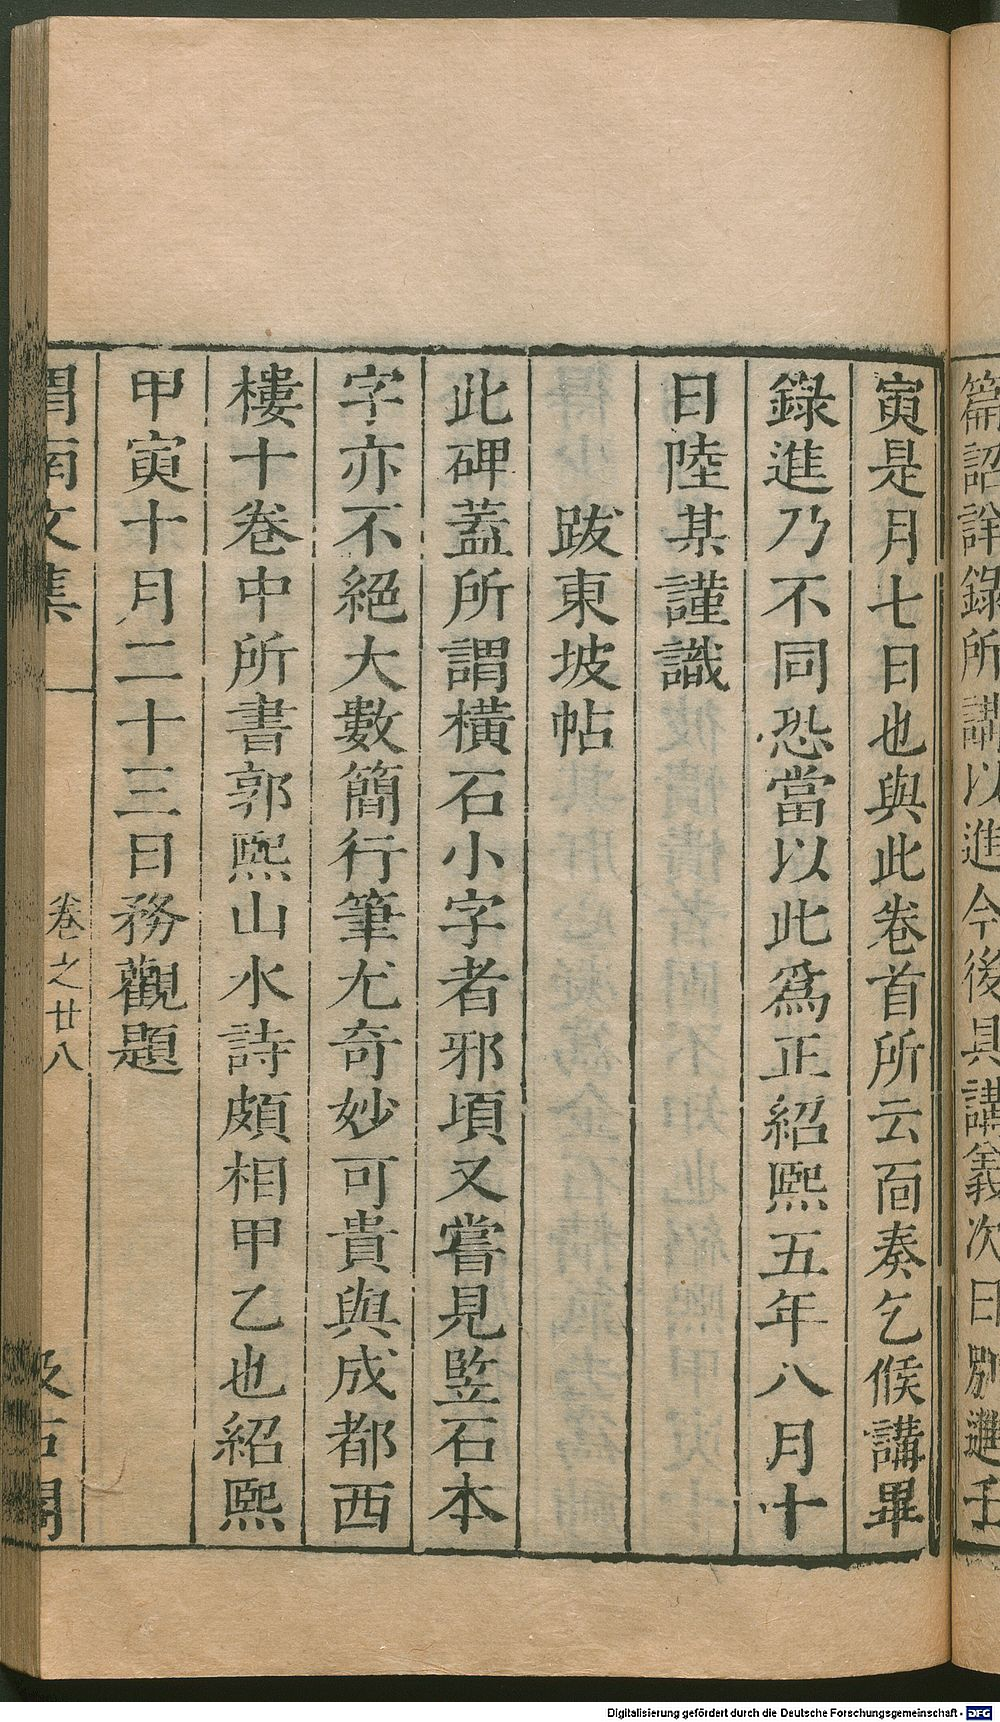 篇詔詳錄所講以進今後具講義次日別進壬
寅是月七日也與此卷首所云面奏乞候講畢
錄進乃不同恐當以此爲正紹熙五年八月十
日陸某謹識
跋東坡帖
此碑蓋所謂橫石小字者邪頃又嘗見竪石本
字亦不絕大數簡行筆尤奇妙可貴與成都西
樓十卷中所書郭熙山水詩頗相甲乙也紹熙
甲寅十月二十三日務觀題
渭南文集 卷之廿八 汲古閣
Digitalisierung gefördert durch die Deutsche Forschungsgemeinschaft - DFG